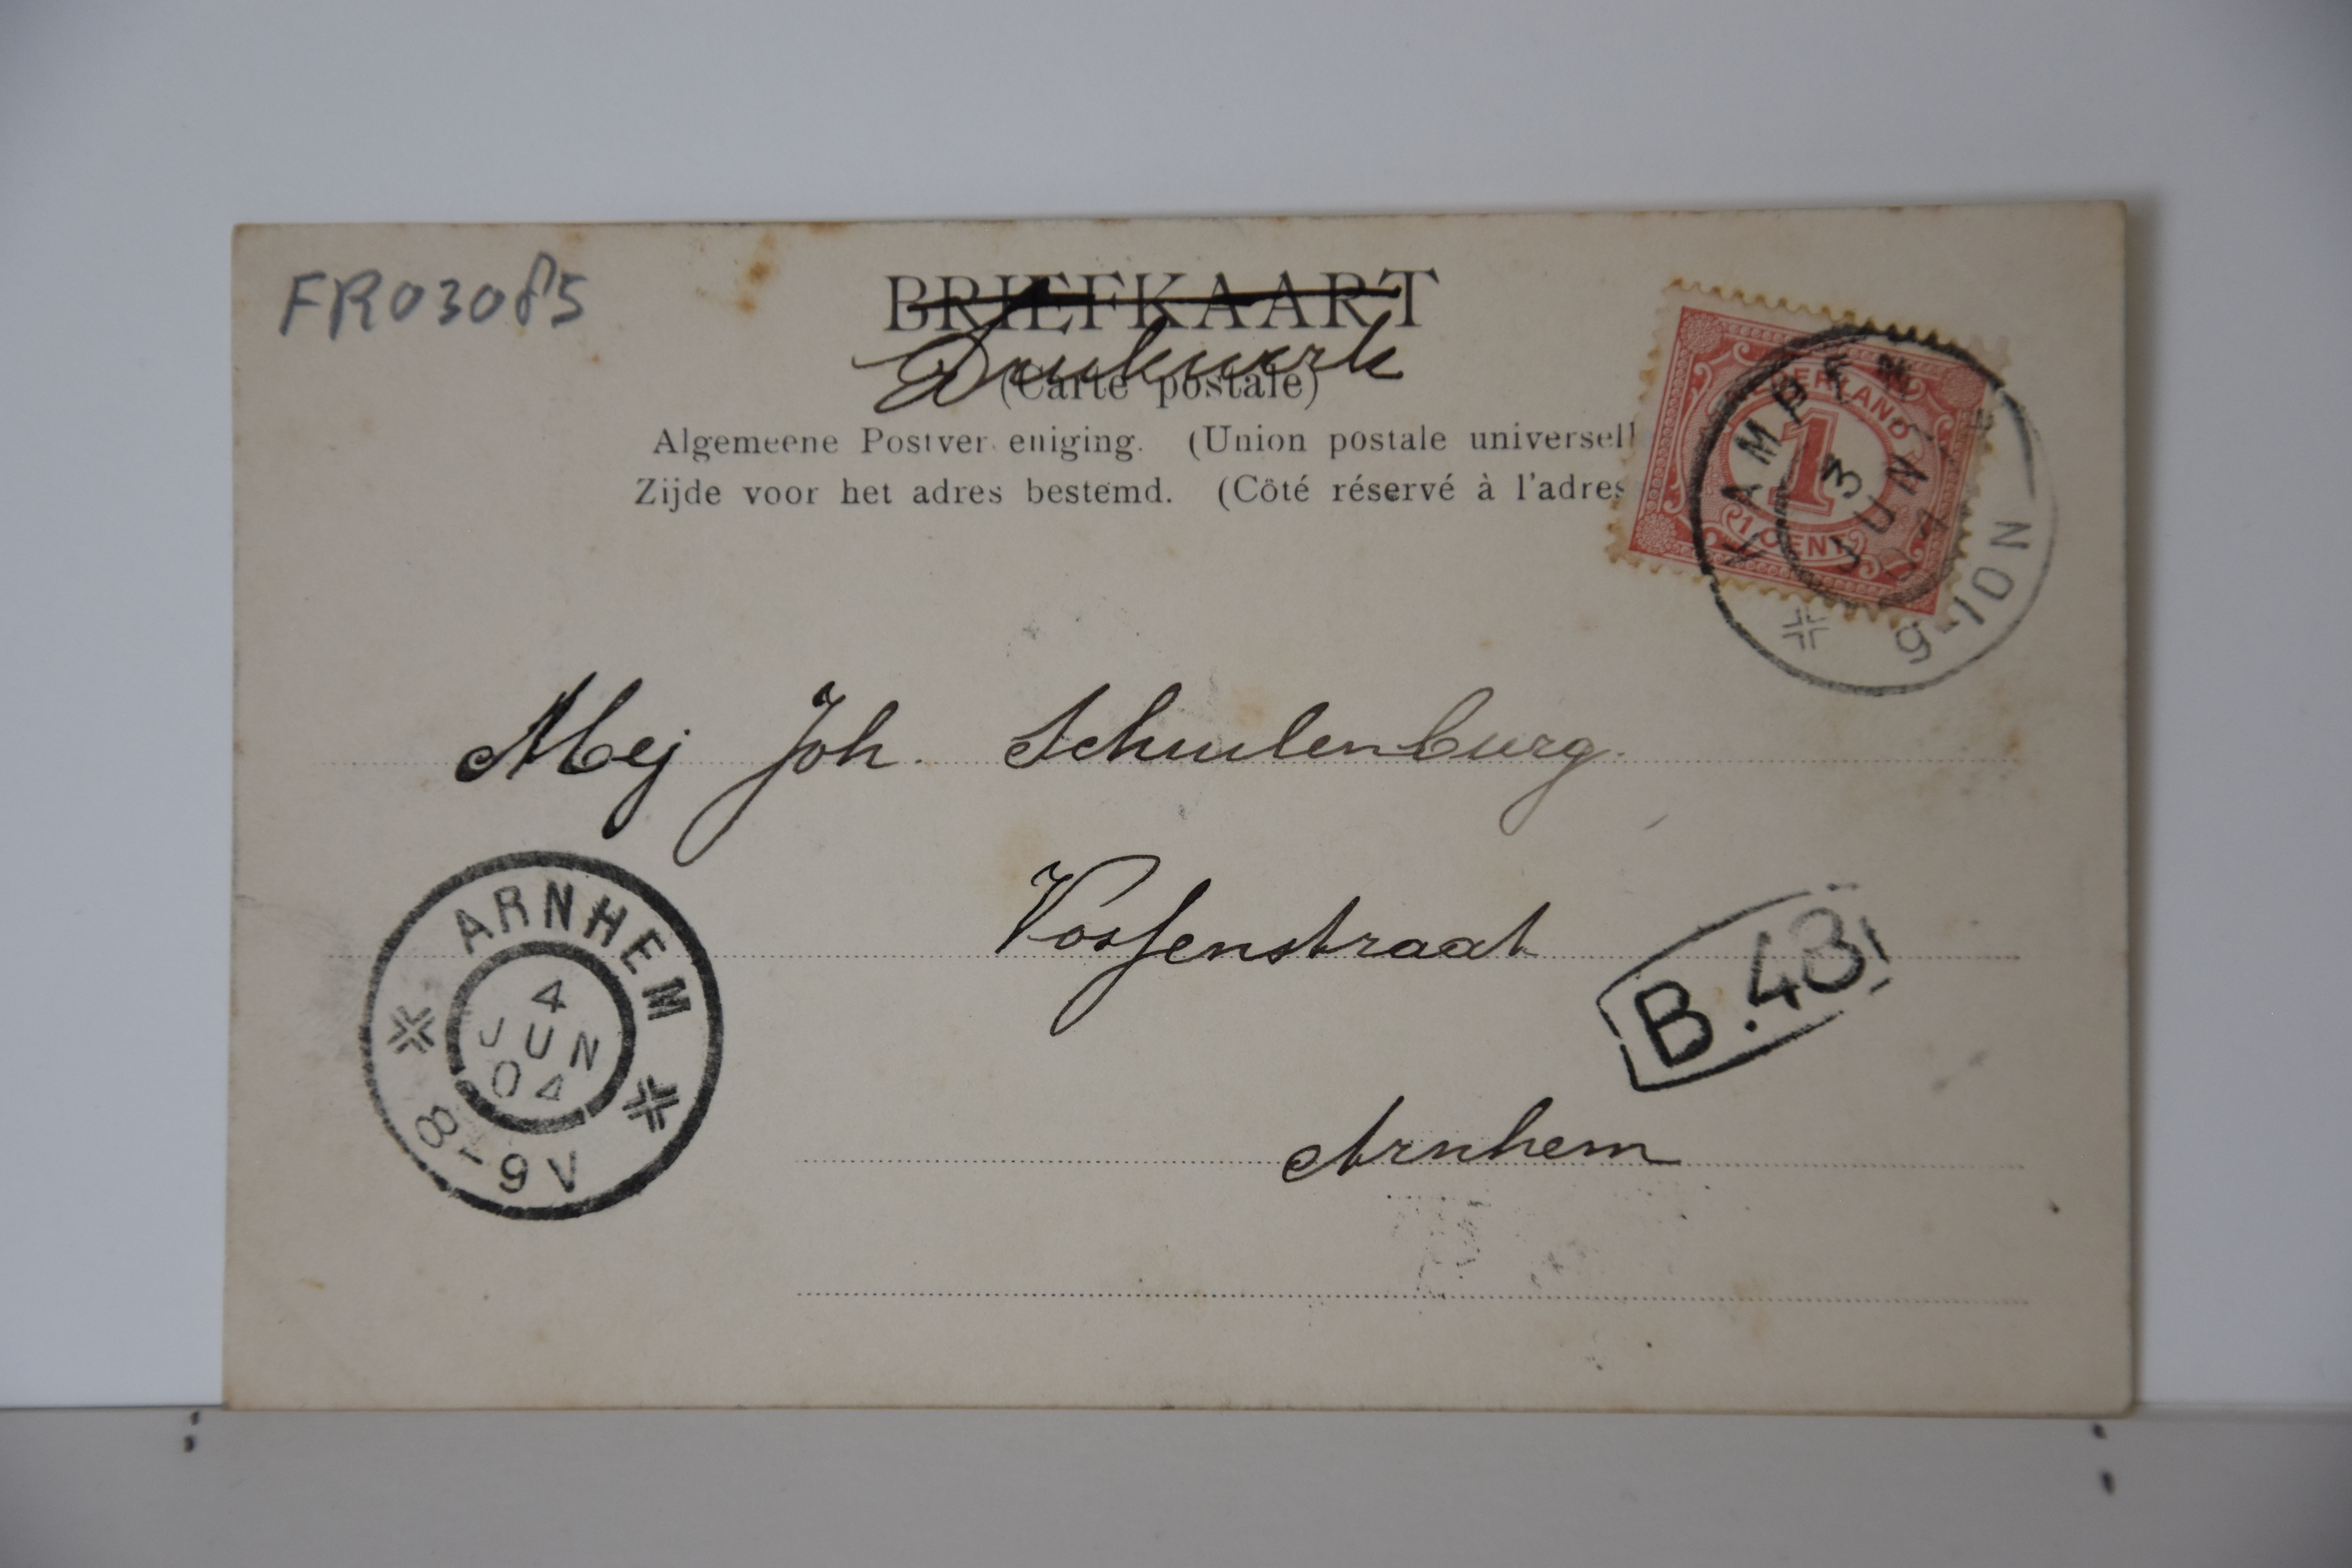 FR03085
BRIEFKAART
Drukwerk
(Carte postale)
Algemeene Postvereniging. (Union postale universell
Zijde voor het adres bestemd. (Côté réservé à l'adres
NEDERLAND
1
1 CENT
KAMPEN
3
JUN
04
9-10N
Mej Joh. Schulenburg.
Vossenstraat
Arnhem
ARNHEM
4
JUN
04
8-9V
B.43